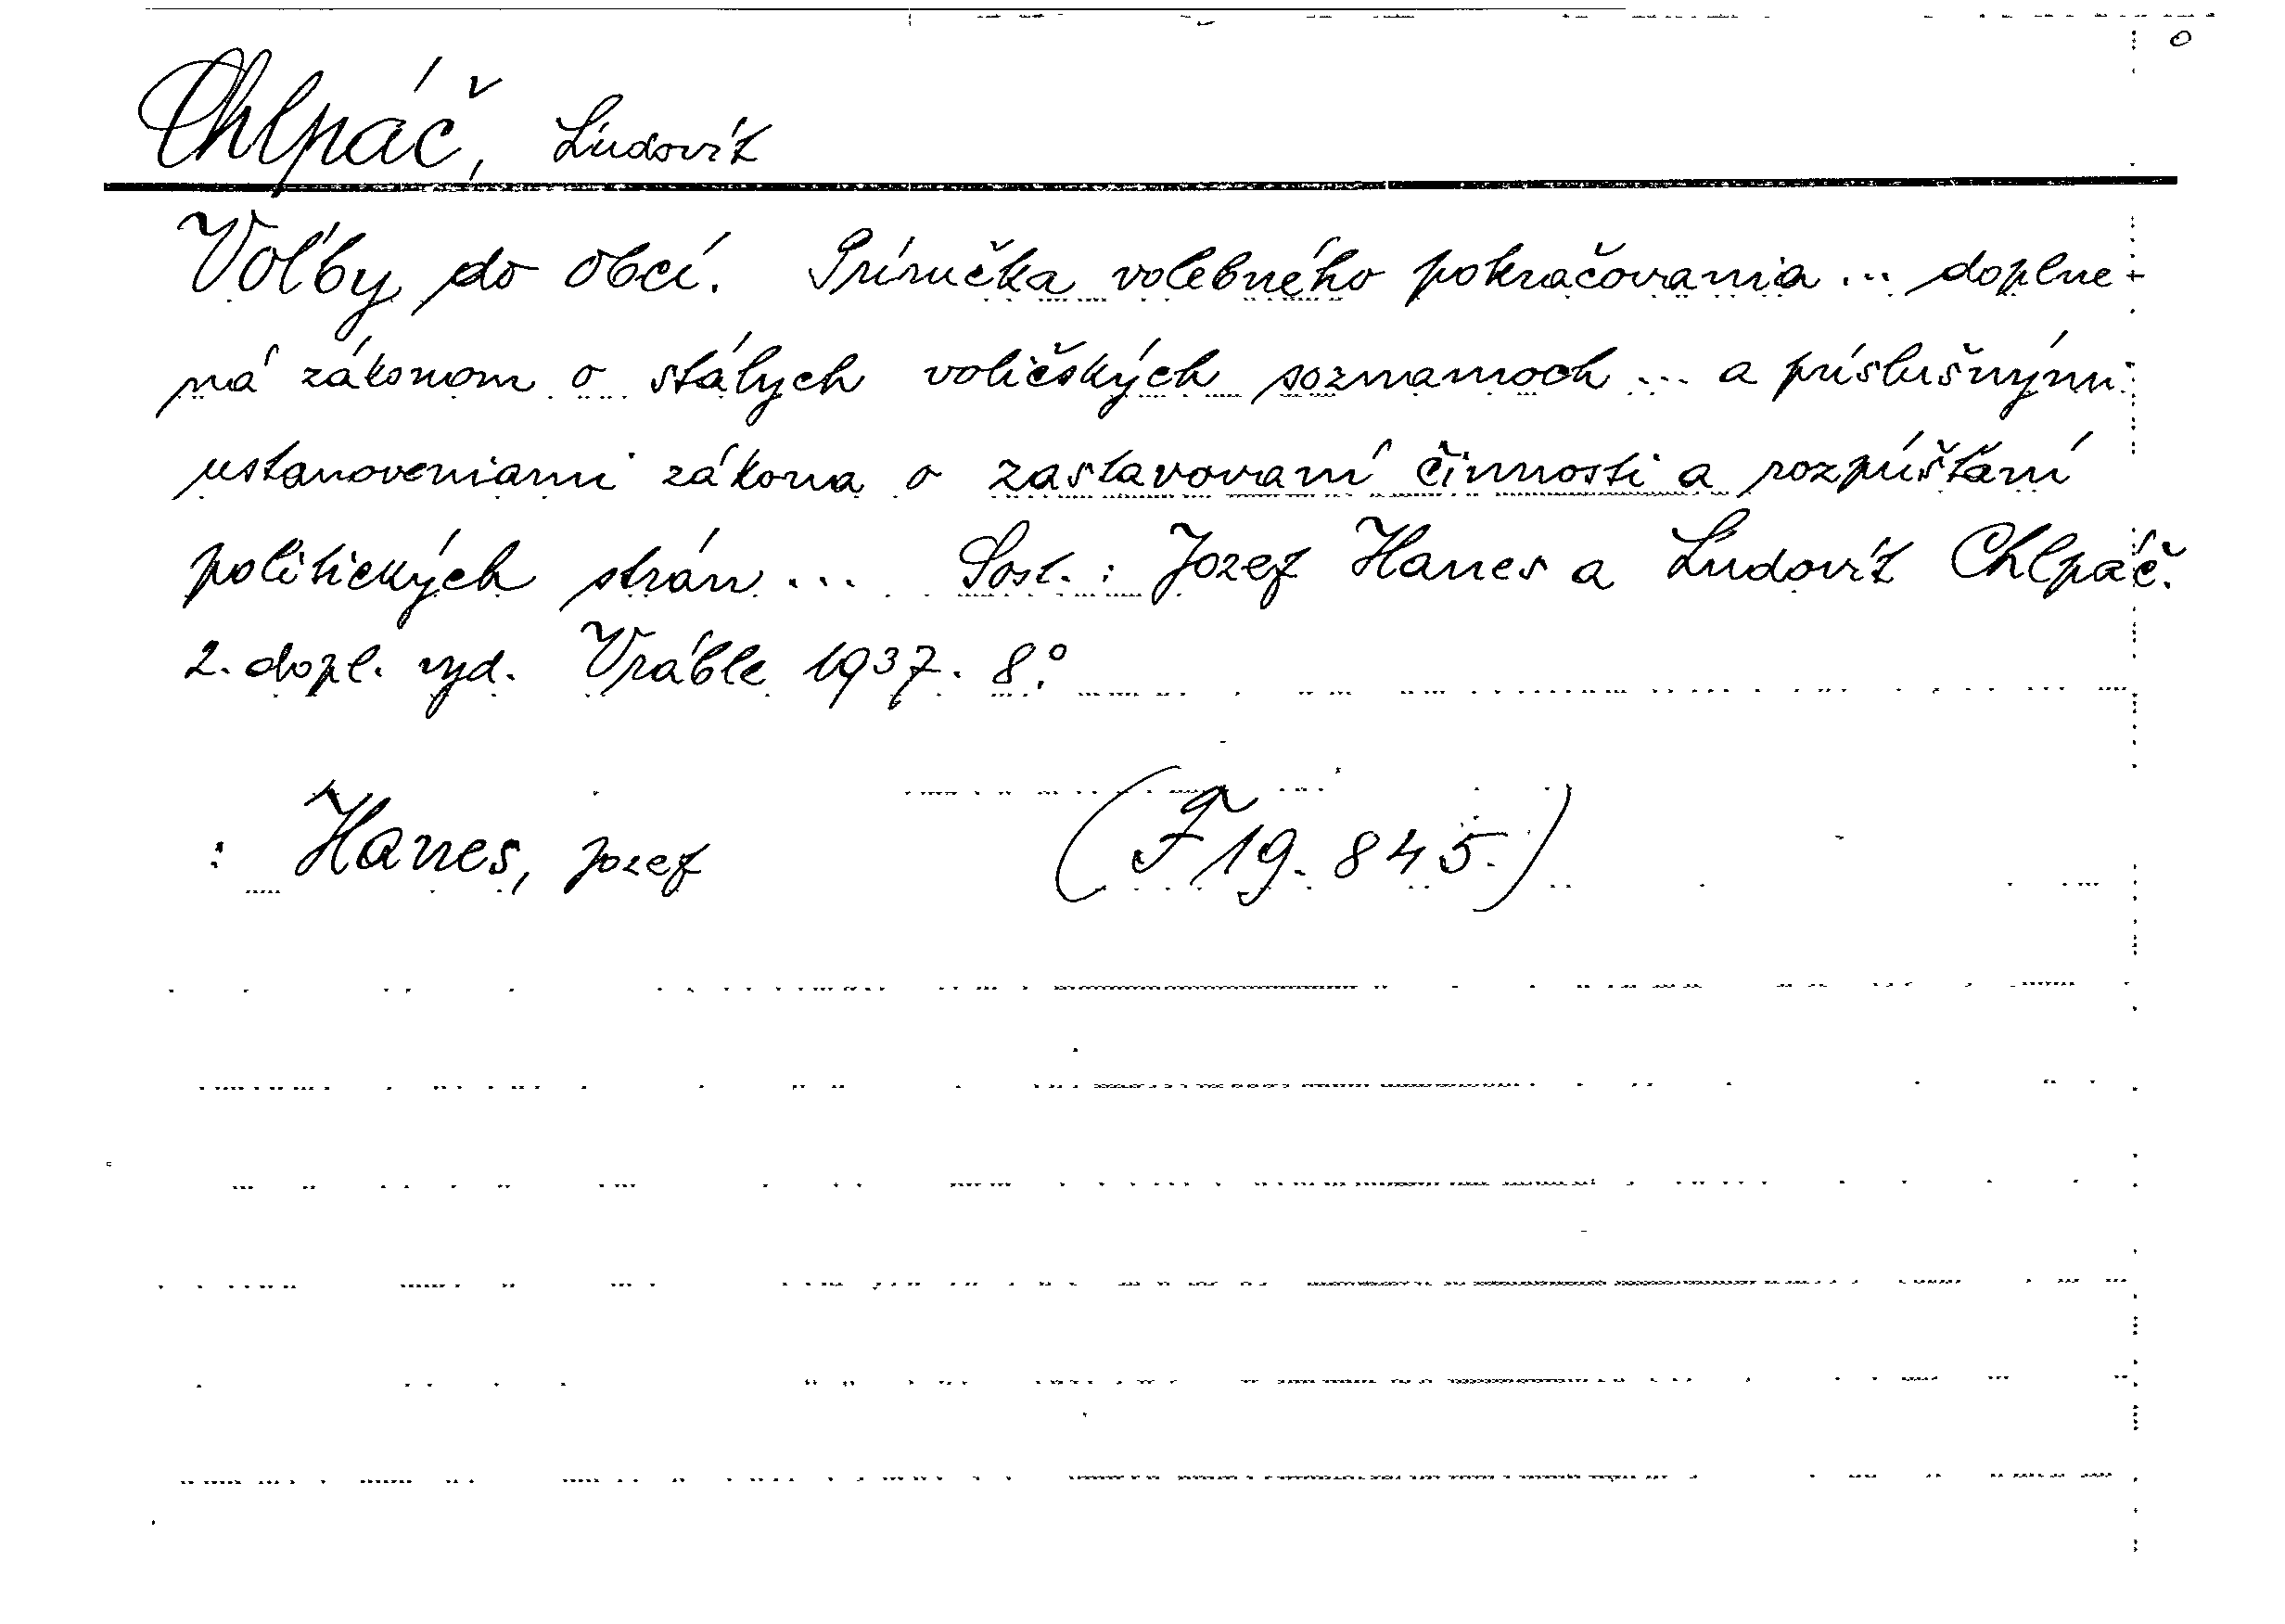 Chlpáč, Ľudovít
Voľby do obcí. Príručka volebného pokračovania ... doplne-
ná zákonom o stálych voličských soznamoch ... a príslušnými
ustanoveniami zákona o zastavovaní činnosti a rozpúšťaní
politických strán ... Sost.: Jozef Hanes a Ľudovít Chlpáč.
2. dopl. vyd. Vráble 1937. 8°.
: Hanes, Jozef (F 19.845.)